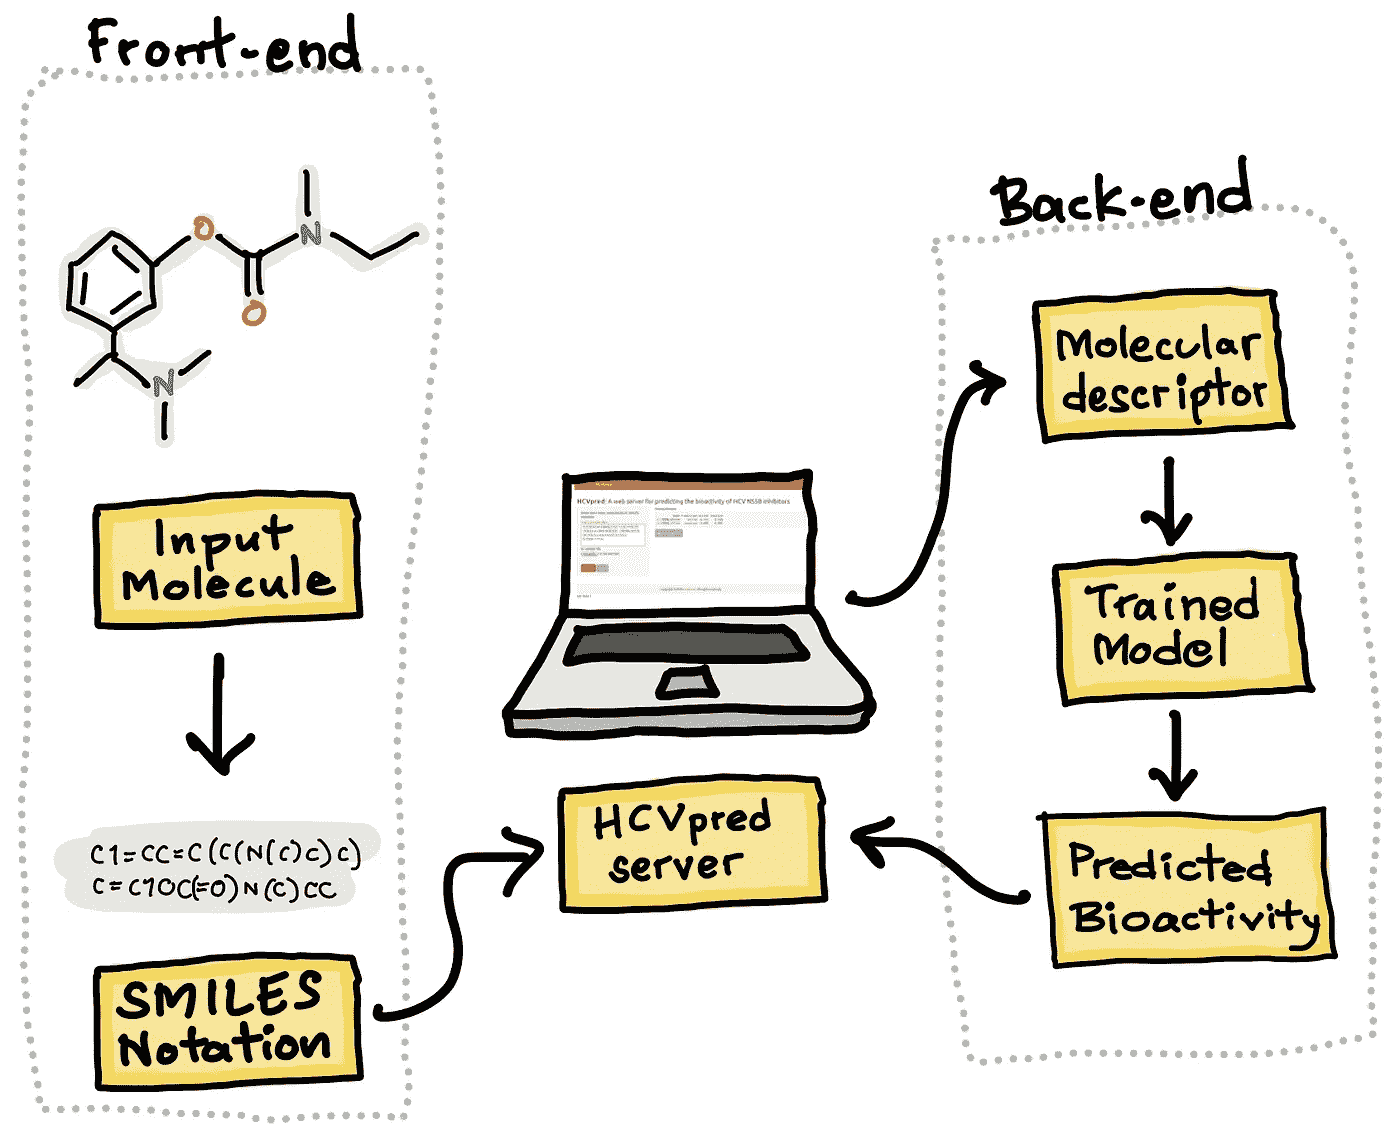 Front-end
O
N
O
N
Input
Molecule
C1=CC=C(C(N(C)C)C)
C=C1OC(=O)N(C)CC
SMILES
Notation
HCVpred: A web server for predicting the bioactivity of HCV NS5B inhibitors
HCVpred
server
Back-end
Molecular
descriptor
Trained
Model
Predicted
Bioactivity